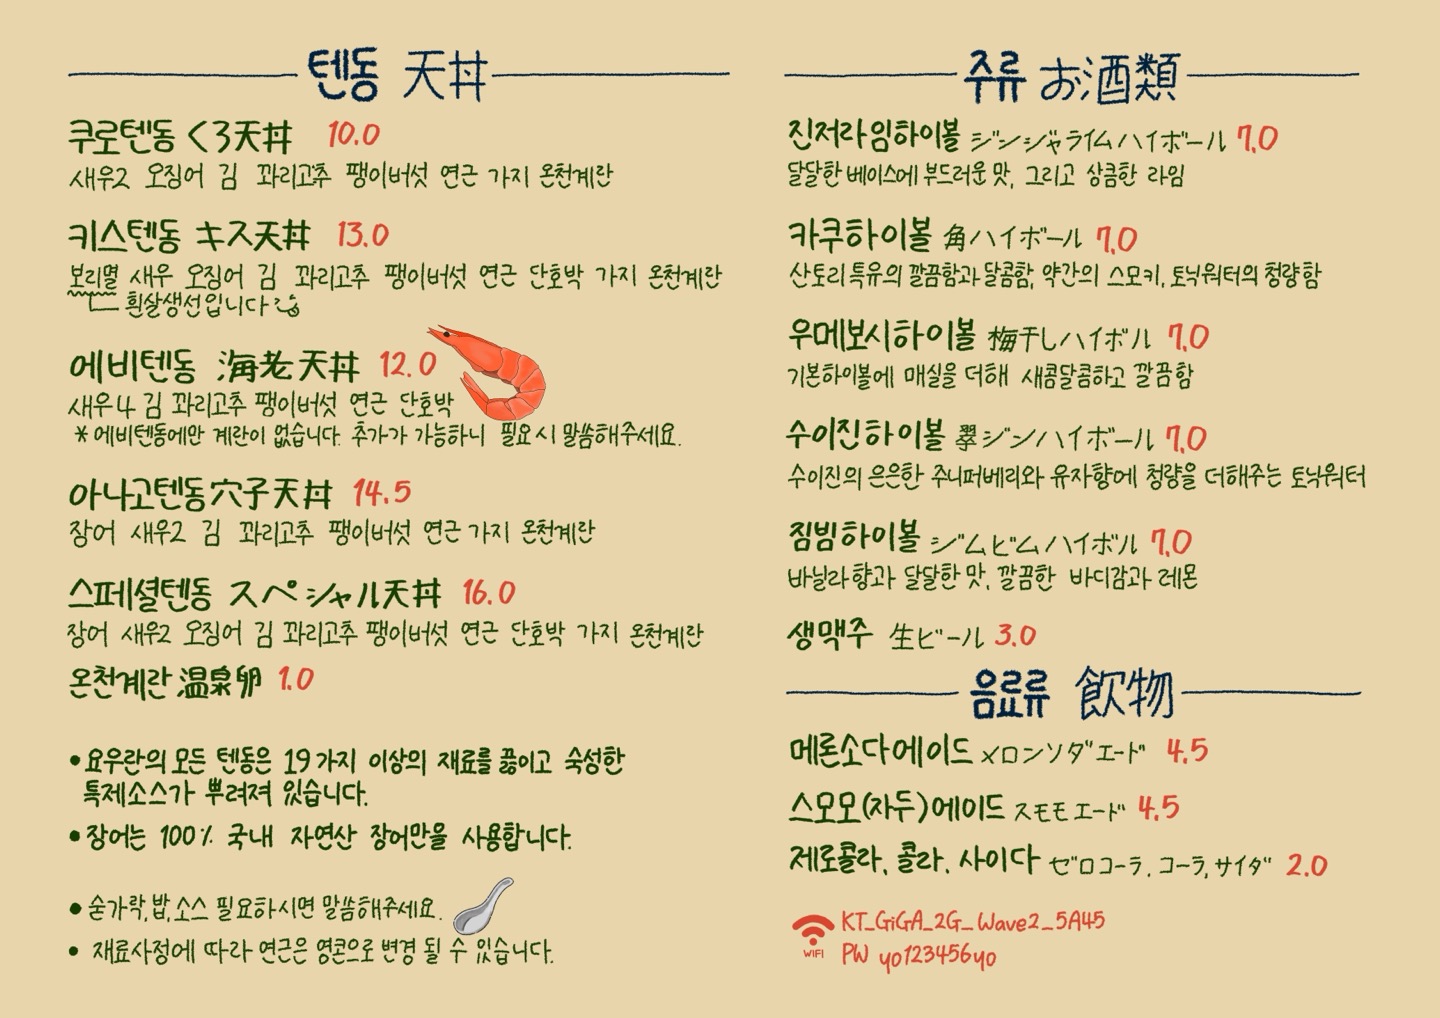 텐동 天丼
쿠로텐동 くろ天丼 10.0
새우2 오징어 김 꽈리고추 팽이버섯 연근 가지 온천계란
키스텐동 キス天丼 13.0
보리멸 새우 오징어 김 꽈리고추 팽이버섯 연근 단호박 가지 온천계란
흰살생선입니다
에비텐동 海老天丼 12.0
새우4 김 꽈리고추 팽이버섯 연근 단호박
* 에비텐동에만 계란이 없습니다. 추가가 가능하니 필요시 말씀해주세요.
아나고텐동 穴子天丼 14.5
장어 새우2 김 꽈리고추 팽이버섯 연근 가지 온천계란
스페셜텐동 スペシャル天丼 16.0
장어 새우2 오징어 김 꽈리고추 팽이버섯 연근 단호박 가지 온천계란
온천계란 温泉卵 1.0
• 요우란의 모든 텐동은 19가지 이상의 재료를 끓이고 숙성한
특제소스가 뿌려져 있습니다.
• 장어는 100% 국내 자연산 장어만을 사용합니다.
• 숟가락, 밥, 소스 필요하시면 말씀해주세요.
• 재료사정에 따라 연근은 영콘으로 변경 될 수 있습니다.
주류 お酒類
진저라임하이볼 ジンジャライムハイボール 7.0
달달한 베이스에 부드러운 맛, 그리고 상큼한 라임
카쿠하이볼 角ハイボール 7.0
산토리 특유의 깔끔함과 달콤함, 약간의 스모키, 토닉워터의 청량함
우메보시하이볼 梅干しハイボル 7.0
기본하이볼에 매실을 더해 새콤달콤하고 깔끔함
수이진하이볼 翠ジンハイボール 7.0
수이진의 은은한 주니퍼베리와 유자향에 청량을 더해주는 토닉워터
짐빔하이볼 ジムビムハイボル 7.0
바닐라향과 달달한 맛, 깔끔한 바디감과 레몬
생맥주 生ビール 3.0
음료류 飲物
메론소다에이드 メロンソダエード 4.5
스모모(자두)에이드 スモモエード 4.5
제로콜라, 콜라, 사이다 ゼロコーラ, コーラ, サイダ 2.0
KT_GiGA_2G_Wave2_5A45
WIFI
PW yo123456yo